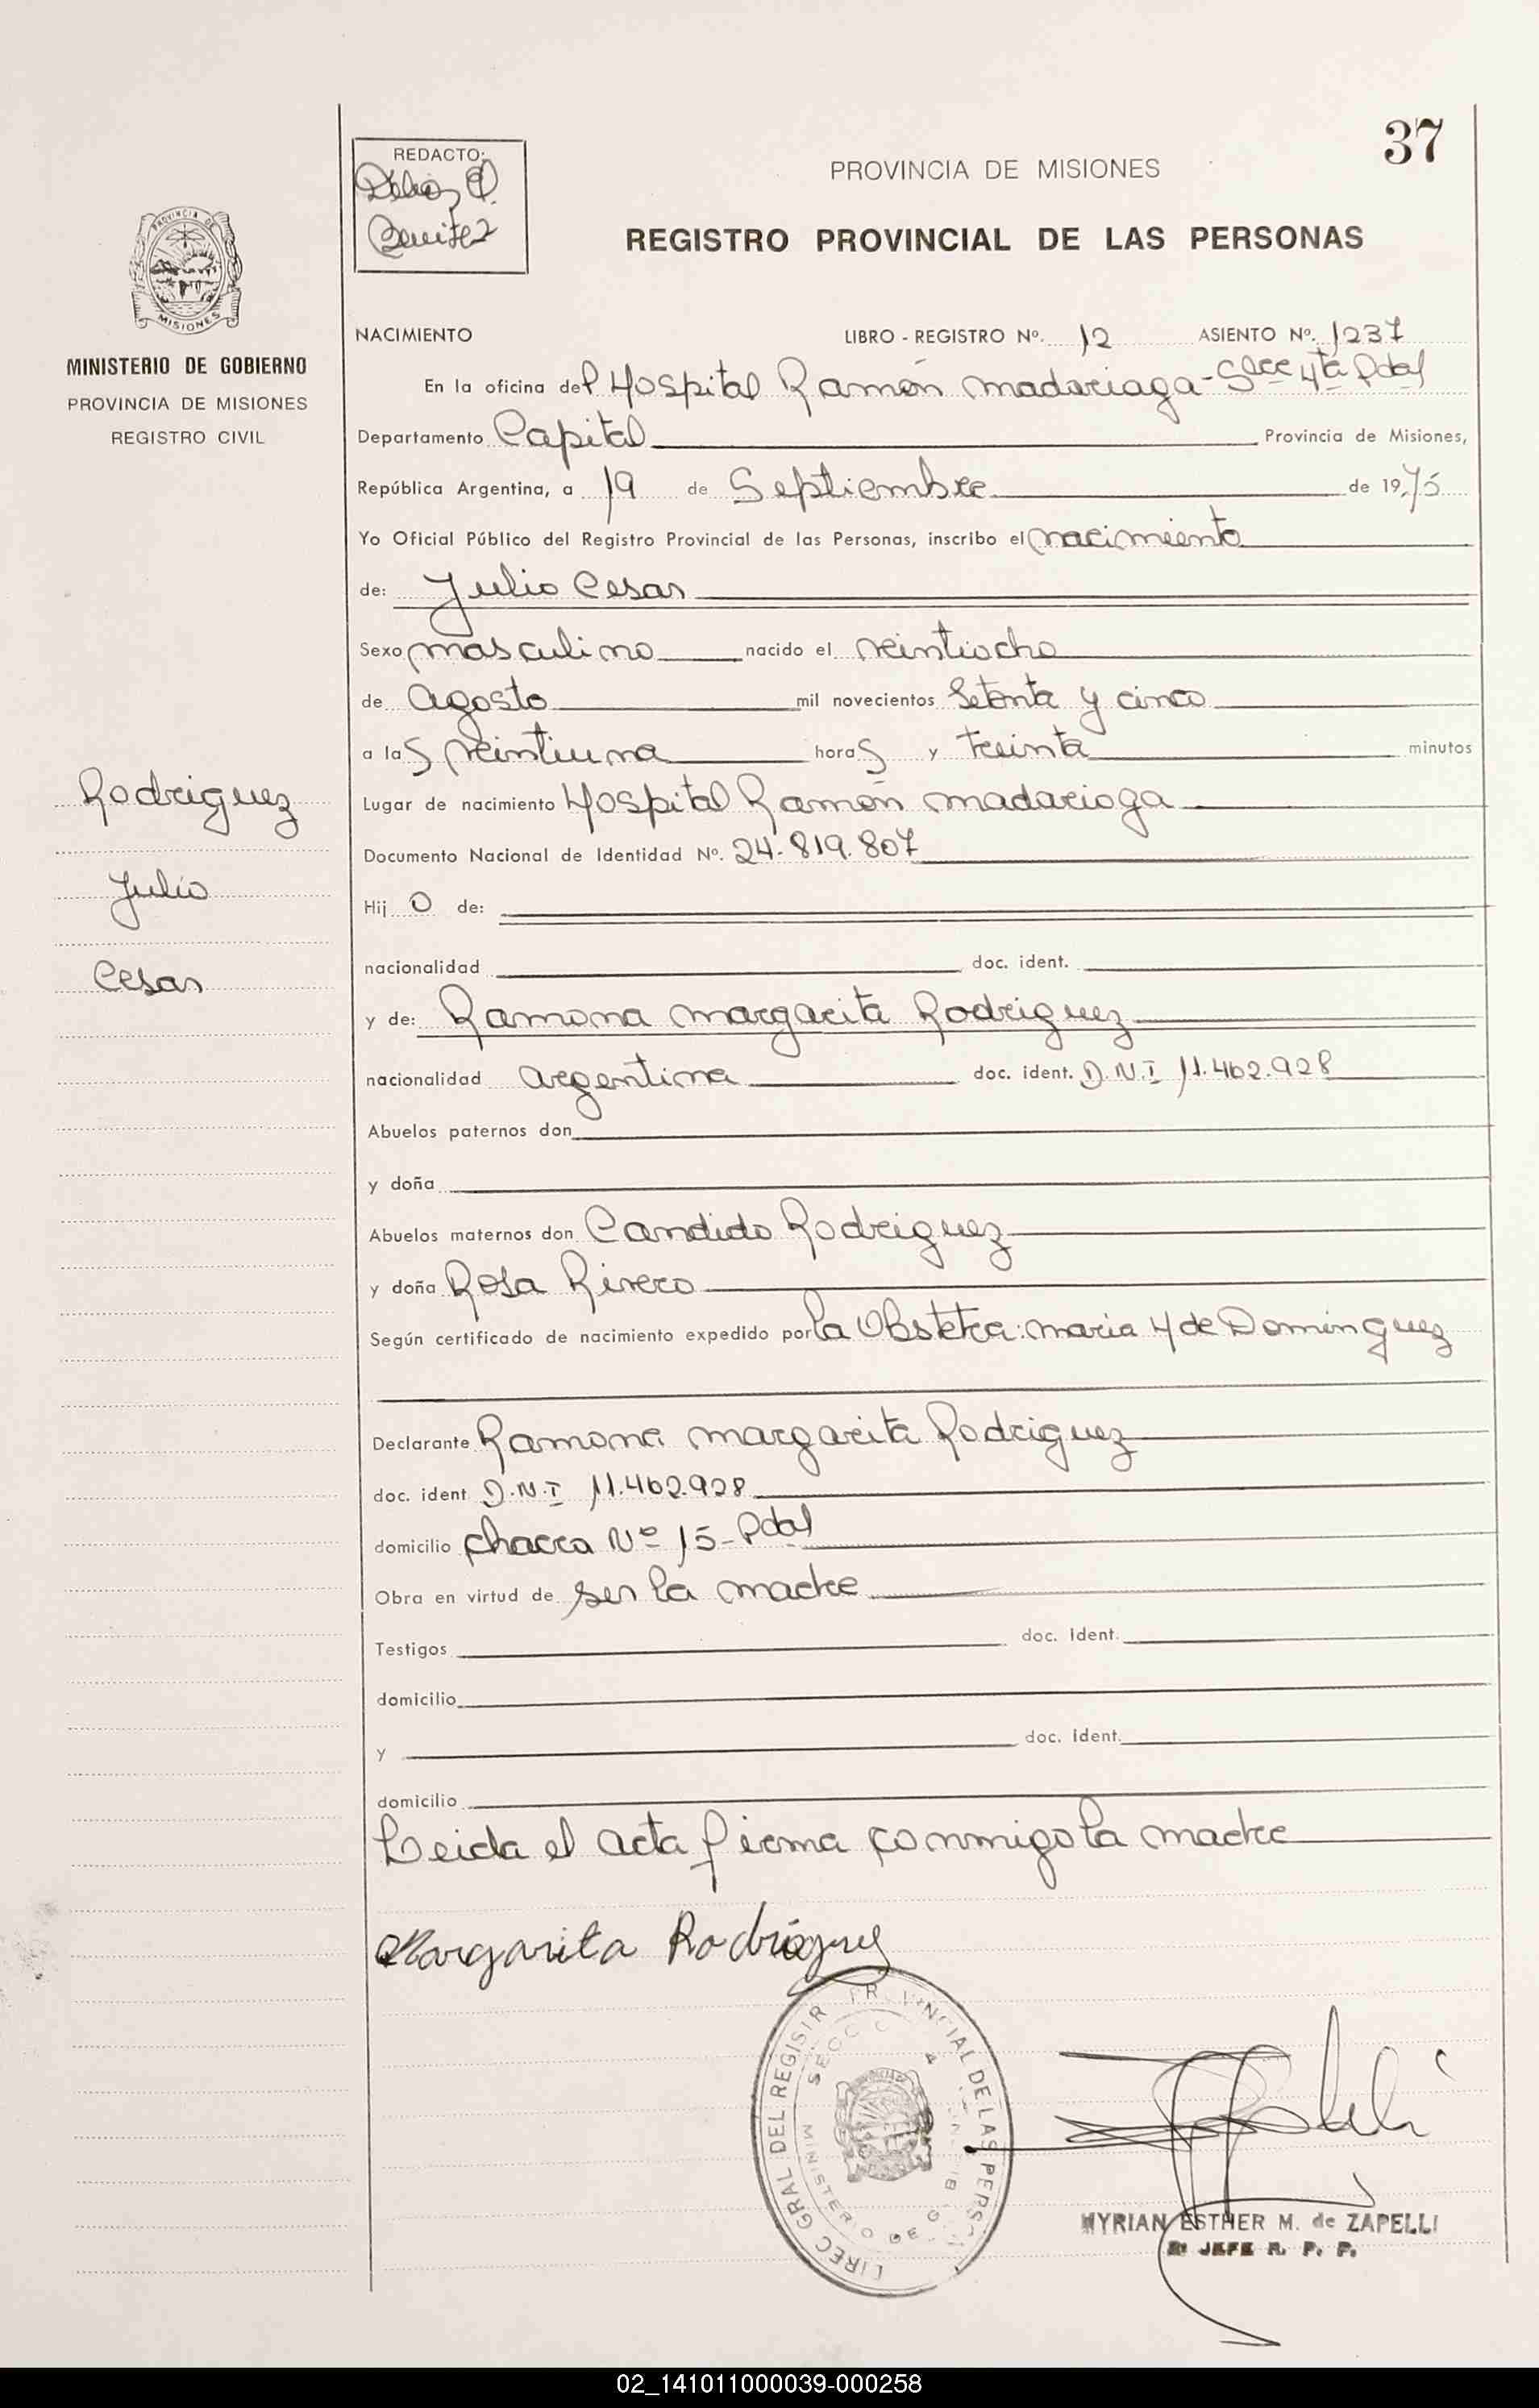 37
REDACTO:
Benitez
PROVINCIA DE MISIONES
REGISTRO PROVINCIAL DE LAS PERSONAS
PROVINCIA DE
MISIONES
MINISTERIO DE GOBIERNO
PROVINCIA DE MISIONES
REGISTRO CIVIL
NACIMIENTO LIBRO - REGISTRO Nº. 12 ASIENTO Nº. 1237
En la oficina del Hospital Ramón madariaga - Secc 4ta Pdas
Departamento Capital Provincia de Misiones,
República Argentina, a 19 de Septiembre de 1975
Yo Oficial Público del Registro Provincial de las Personas, inscribo el nacimiento
de: Julio Cesar
Sexo masculino nacido el veintiocho
de agosto mil novecientos Setenta y cinco
a las veintiuna horas y treinta minutos
Lugar de nacimiento Hospital Ramón madariaga
Documento Nacional de Identidad Nº. 24.819.807
Hijo de:
nacionalidad doc. ident.
y de: Ramona margarita Rodriguez
nacionalidad argentina doc. ident. D.N.I 11.462.928
Abuelos paternos don
y doña
Abuelos maternos don Candido Rodriguez
y doña Rosa Rivero
Según certificado de nacimiento expedido por la Obstetra: maria H de Dominguez
Declarante Ramona margarita Rodriguez
doc. ident D.N.I 11.462.928
domicilio chacra Nº 15 - Pdas
Obra en virtud de ser la madre
Testigos doc. ident.
domicilio
y doc. ident.
domicilio
Leida el acta firma conmigo la madre
Rodriguez
Julio
Cesar
Margarita Rodríguez
MINISTERIO DE
MYRIAN ESTHER M. de ZAPELLI
JEFE R. P. P.
02_141011000039-000258